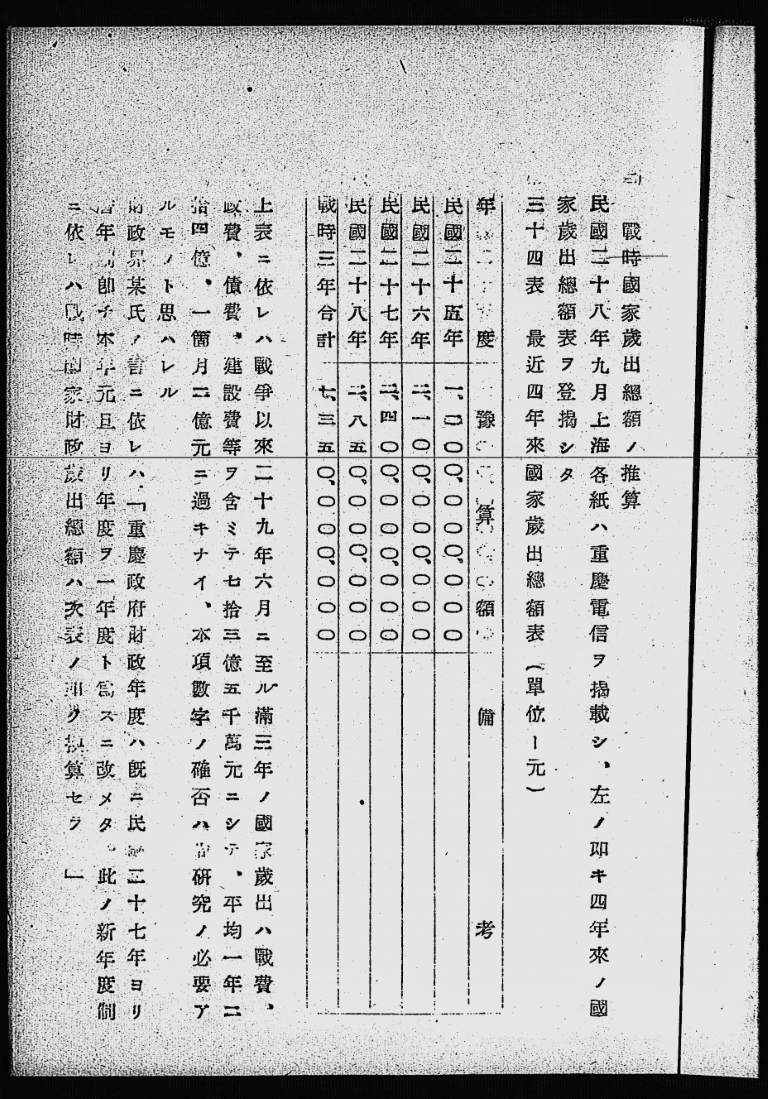 戰時國家歲出總額ノ推算
民國二十八年九月上海各紙ハ重慶電信ヲ揭載シ、左ノ如キ四年來ノ國
家歲出總額表ヲ登揭シタ
三十四表　最近四年來國家歲出總額表(單位ー元)
年度　豫算額　備考
民國二十五年　一、二〇〇、〇〇〇、〇〇〇
民國二十六年　二、一〇〇、〇〇〇、〇〇〇
民國二十七年　二、四〇〇、〇〇〇、〇〇〇
民國二十八年　二、八五〇、〇〇〇、〇〇〇
戰時三年合計　七、三五〇、〇〇〇、〇〇〇
上表ニ依レハ戰爭以來二十九年六月ニ至ル滿三年ノ國家歲出ハ戰費、
政費、債費、建設費等ヲ含ミテ七拾三億五千萬元ニシテ、平均一年二
拾四億、一箇月二億元ニ過キナイ、本項數字ノ確否ハ尙硏究ノ必要ア
ルモノト思ハレル
財政界某氏ノ言ニ依レハ、「重慶政府財政年度ハ旣ニ民國二十七年ヨリ
曆年制卽チ本年元旦ヨリ年度ヲ一年度ト爲スニ改メタ、此ノ新年度制
ニ依レハ戰時國家財政歲出總額ハ次表ノ如ク換算セラ」